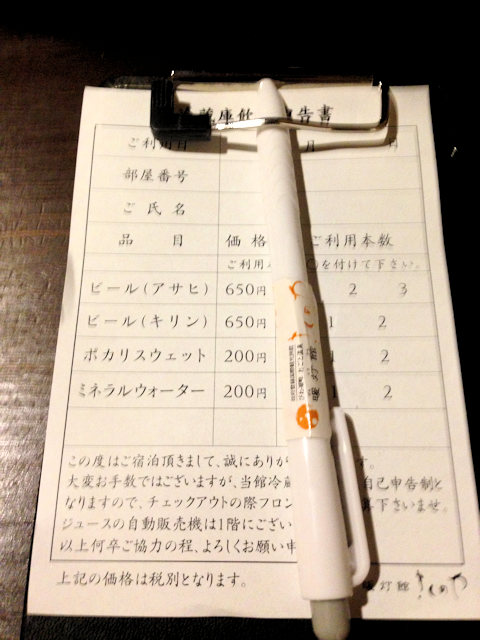 蔵庫飲 申告書
ご利用日 月 月
部屋番号
ご氏名
品目 価格 ご利用本数
ご利用 ○を付けて下さい。
ビール(アサヒ) 650円 2 3
ビール(キリン) 650円 1 2
ポカリスウェット 200円 1 2
ミネラルウォーター 200円 1 2
この度はご宿泊頂きまして、誠にありが す。
大変お手数ではございますが、当館冷蔵 自己申告制と
なりますので、チェックアウトの際フロン 下さいませ。
ジュースの自動販売機は1階にござい
以上何卒ご協力の程、よろしくお願い申
上記の価格は税別となります。
暖灯館 きくのや
びわ湖畔 おごと温泉
暖灯館 きくのや